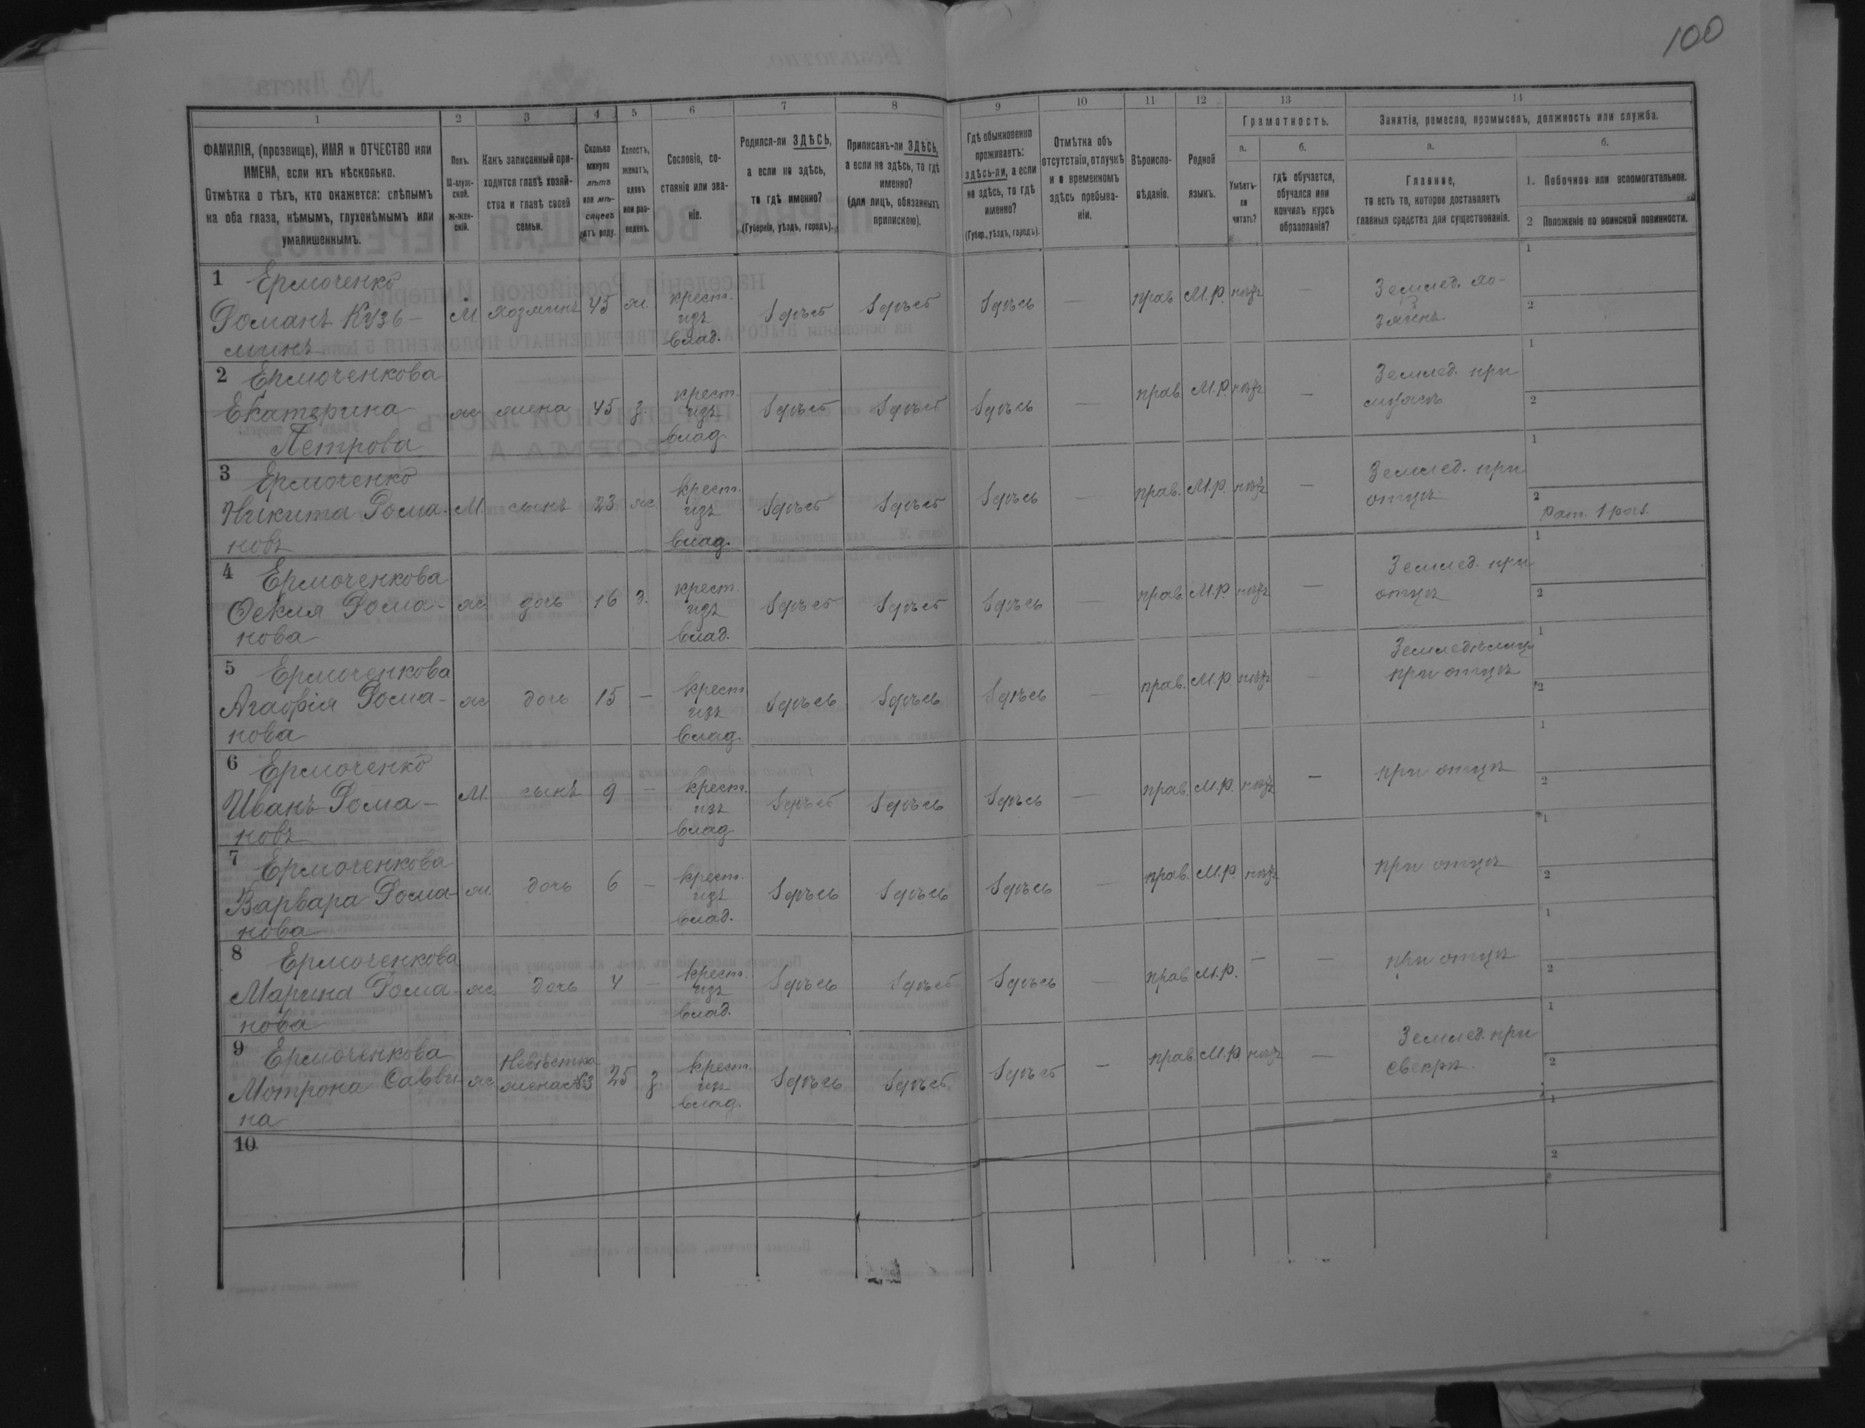 100
1 2 3 4 5 6 7 8 9 10 11 12 13 14
ФАМИЛІЯ, (прозвище), ИМЯ и ОТЧЕСТВО или
ИМЕНА, если ихъ нѣсколько.
Отмѣтка о тѣхъ, кто окажется: слѣпымъ
на оба глаза, нѣмымъ, глухонѣмымъ или
умалишеннымъ.
Полъ.
М-муж-
ской.
Ж-жен-
скій.
Какъ записанный при-
ходится главѣ хозяй-
ства и главѣ своей
семьи.
Сколько
минуло
лѣтъ
или мѣ-
сяцевъ
отъ роду.
Холостъ,
женатъ,
вдовъ
или раз-
веденъ.
Сословіе, со-
стояніе или зва-
ніе.
Родился-ли ЗДѢСЬ,
а если не здѣсь,
то гдѣ именно?
(Губернія, уѣздъ, городъ).
Приписанъ-ли ЗДѢСЬ,
а если не здѣсь, то гдѣ
именно?
(для лицъ, обязанныхъ
припискою).
Гдѣ обыкновенно
проживаетъ:
здѣсь-ли, а если
не здѣсь, то гдѣ
именно?
(Губер., уѣздъ, городъ).
Отмѣтка объ
отсутствіи, отлучкѣ
и о временномъ
здѣсь пребыва-
ніи.
Вѣроиспо-
вѣданіе.
Родной
языкъ.
Грамотность.
а.
Умѣетъ-
ли
читать?
б.
гдѣ обучается,
обучался или
кончилъ курсъ
образованія?
Занятіе, ремесло, промыселъ, должность или служба.
а.
Главное,
то есть то, которое доставляетъ
главныя средства для существованія.
б.
1. Побочное или вспомогательное.
2 Положеніе по воинской повинности.
1 Ермоченко
Романъ Кузь-
минъ
М. хозяинъ 45 ж. крест.
изъ
влад.
Здѣсь Здѣсь Здѣсь — прав. М.р. нѣтъ —
Землед. хо-
зяинъ
1
2
2 Ермоченкова
Екатерина
Петрова
ж жена 45 з. крест.
изъ
влад.
Здѣсь Здѣсь Здѣсь прав. М.р. нѣтъ —
Землед. при
мужѣ
1
2
3 Ермоченко
Никита Рома-
новъ
М. сынъ 23 ж. крест.
изъ
влад.
Здѣсь Здѣсь Здѣсь — прав. М.р. нѣтъ —
Землед. при
отцѣ
1
2
Рат. 1 раз.
4 Ермоченкова
Ѳекля Рома-
нова
ж. дочь 16 з. крест.
изъ
влад.
Здѣсь Здѣсь Здѣсь — прав. М.р. нѣтъ —
Землед. при
отцѣ
1
2
5 Ермоченкова
Агафія Рома-
нова
ж. дочь 15 — крест.
изъ
влад.
Здѣсь Здѣсь Здѣсь — прав. М.р. нѣтъ —
при отцѣ
1
2
6 Ермоченко
Иванъ Рома-
новъ
М. сынъ 9 — крест.
изъ
влад.
Здѣсь Здѣсь Здѣсь — прав. М.р. нѣтъ —
при отцѣ
1
2
7 Ермоченкова
Варвара Рома-
нова
ж. дочь 6 — крест.
изъ
влад.
Здѣсь Здѣсь Здѣсь — прав. М.р. нѣтъ
при отцѣ
1
2
8 Ермоченкова
Марина Рома-
нова
ж. дочь 4 — крест.
изъ
влад.
Здѣсь Здѣсь Здѣсь — прав. М.р. — —
при отцѣ
1
2
9 Ермоченкова
Мотрона Савви
на
ж. Невѣстка
жена №3
25 з. крест.
изъ
влад.
Здѣсь Здѣсь Здѣсь — прав. М.р. нѣтъ —
Землед. при
свекрѣ
1
2
10.
1
2